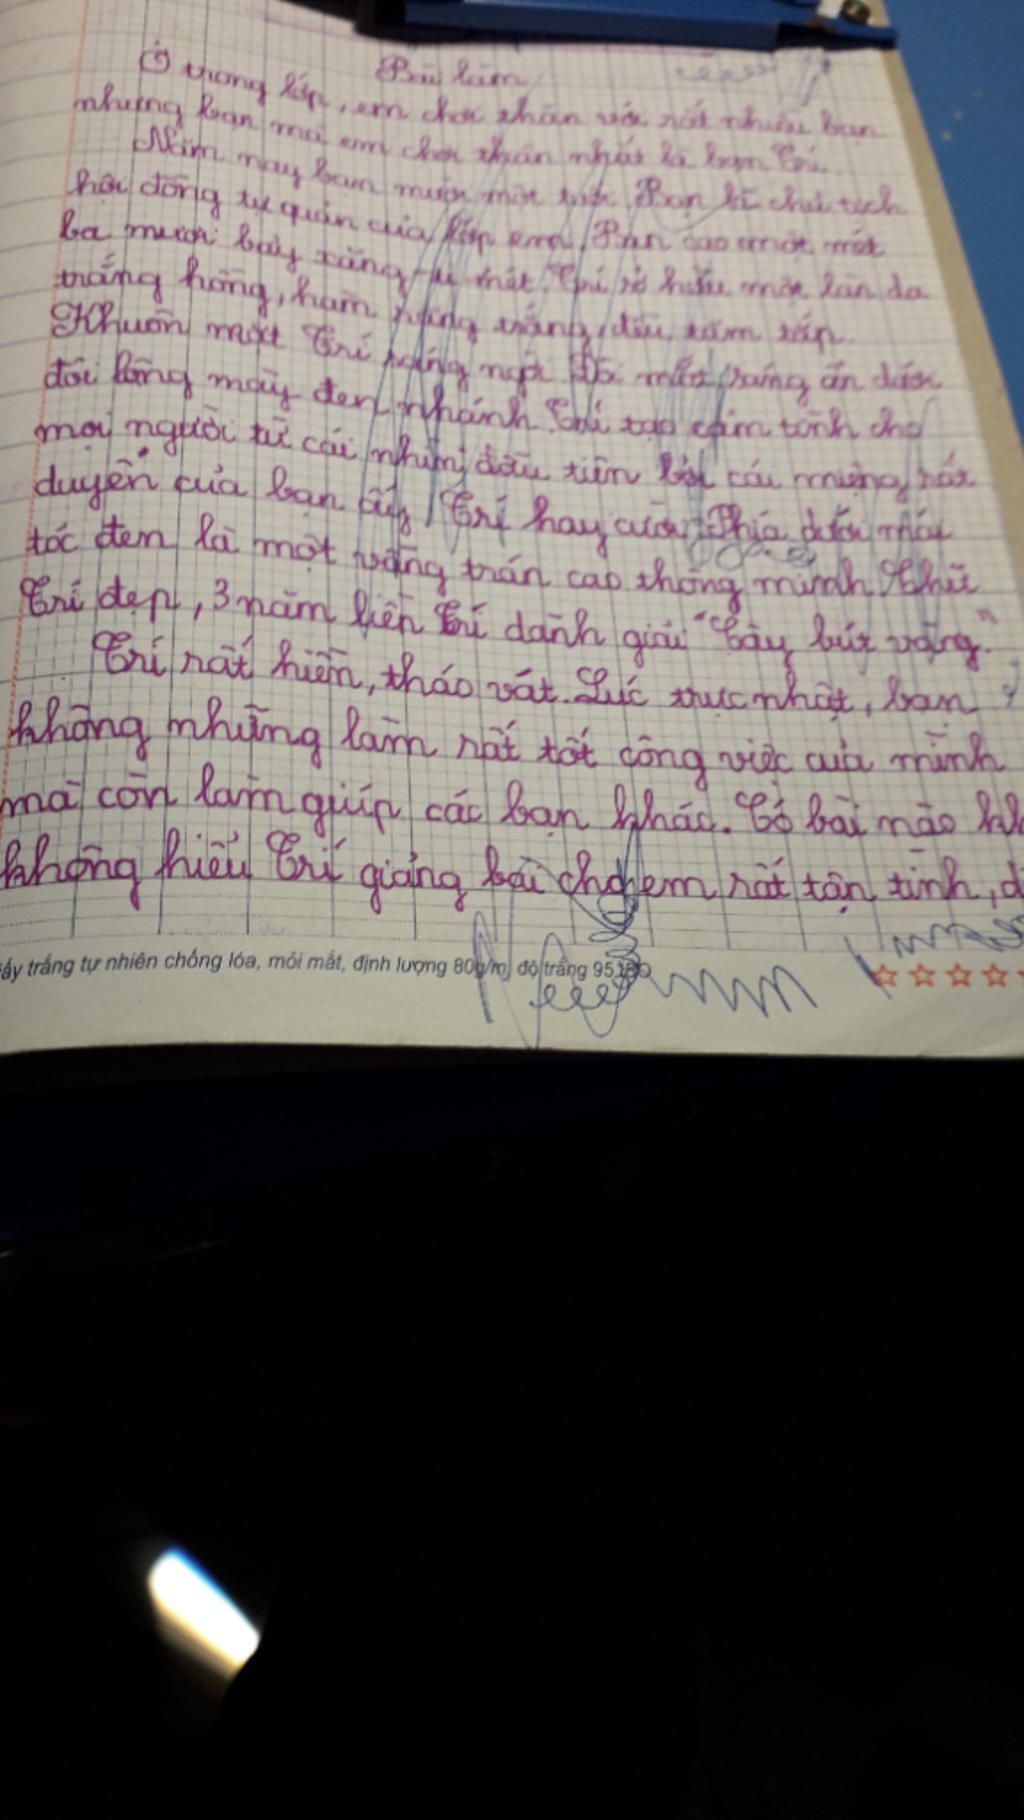 Bài làm
Ở trong lớp, em chơi thân với rất nhiều bạn
nhưng bạn mà em chơi thân nhất là bạn Trí.
Năm nay bạn mười một tuổi. Bạn là chủ tịch
hội đồng tự quản của lớp em. Bạn cao một mét
ba mươi bảy xăng-ti-mét. Trí sở hữu một làn da
trắng hồng, hàm răng trắng, đều tăm tắp.
Khuôn mặt Trí ngời. Đôi mắt sáng ẩn dưới
đôi lông mày đen nhánh. Trí tạo cảm tình cho
mọi người từ cái nhìn đầu tiên bởi cái miệng rất
duyên của bạn ấy. Trí hay cười. Phía dưới mái
tóc đen là một vầng trán cao thông minh. Chữ
Trí đẹp, 3 năm liền Trí dành giải "Cây bút vàng"
Trí rất hiền, tháo vát. Lúc trực nhật, bạn
không những làm rất tốt công việc của mình
mà còn làm giúp các bạn khác. Có bài nào kh
không hiểu Trí giảng bài cho em rất tận tình, d
ấy trắng tự nhiên chống lóa, mỏi mắt, định lượng 80g/m, độ trắng 95